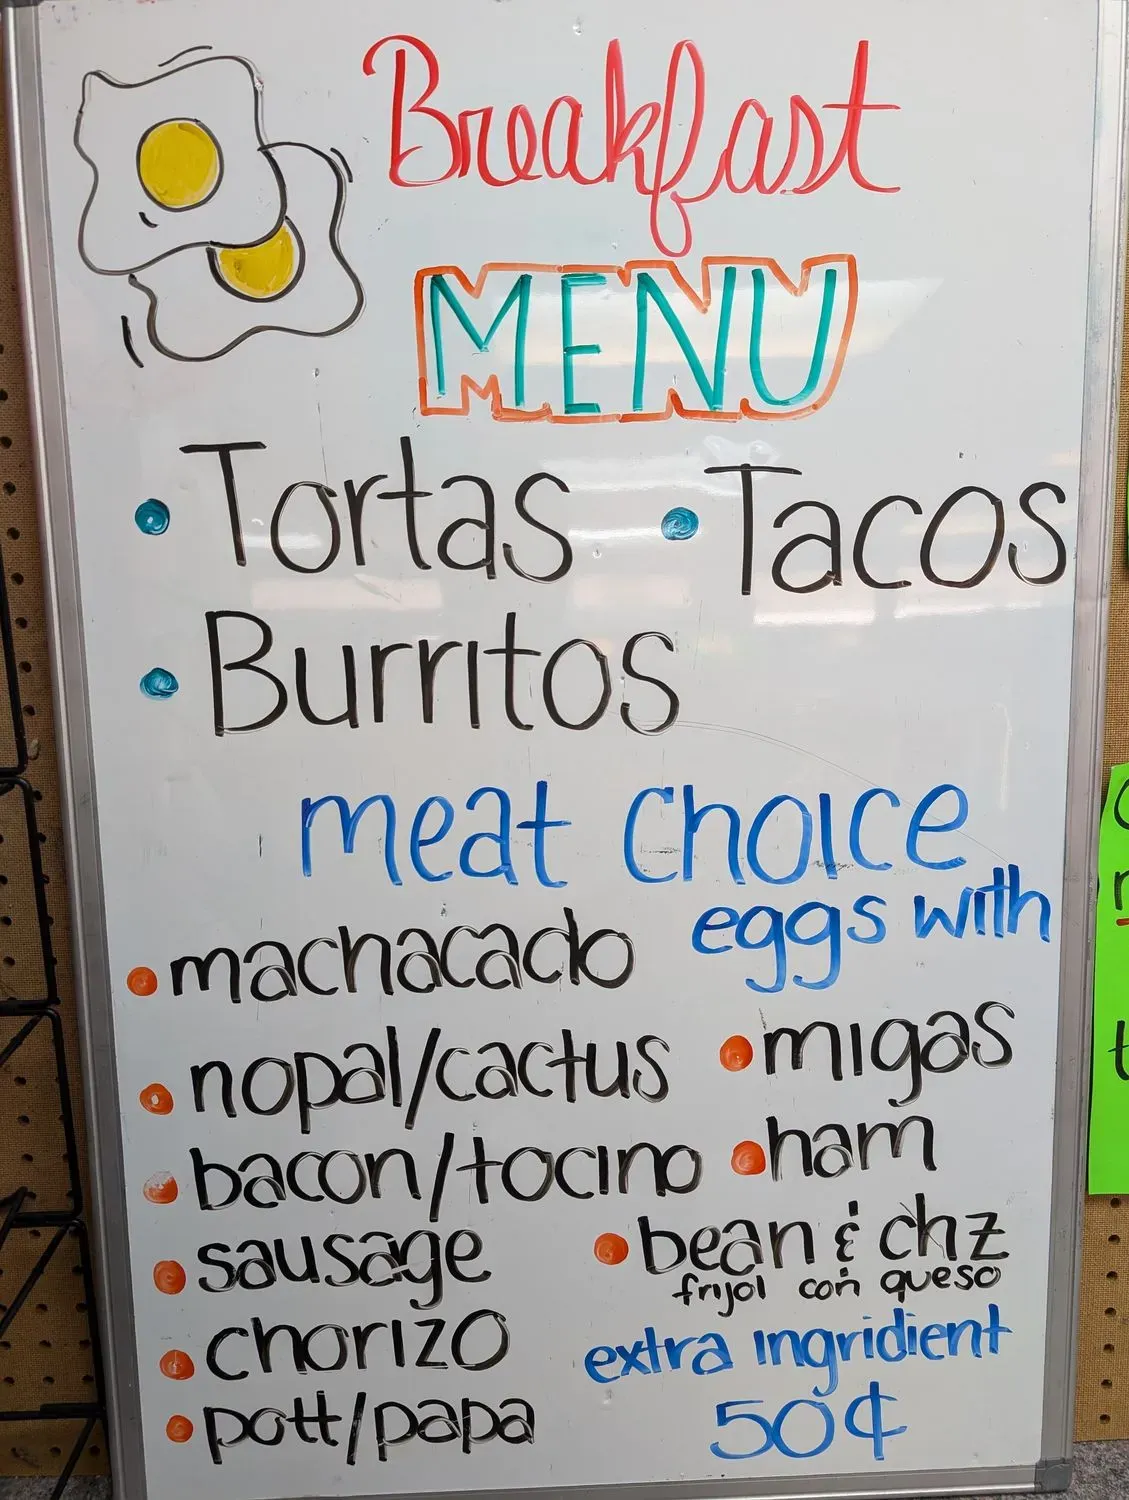 Breakfast
MENU
• Tortas • Tacos
• Burritos
meat choice
eggs with
• machacado
• nopal/cactus
• migas
• bacon/tocino
• ham
• sausage
• bean & chz
frijol con queso
• chorizo
extra ingridient
50¢
• pott/papa